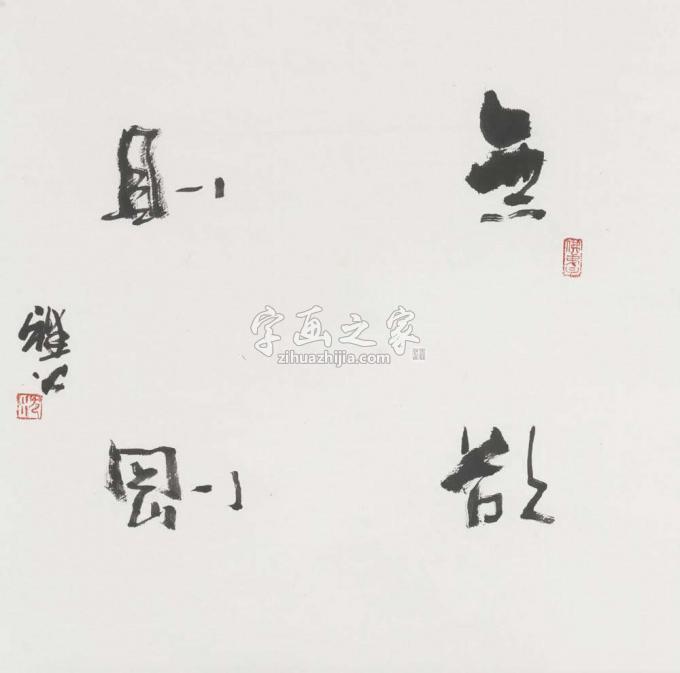 無欲
則剛
字画之家
zihuazhijia.com